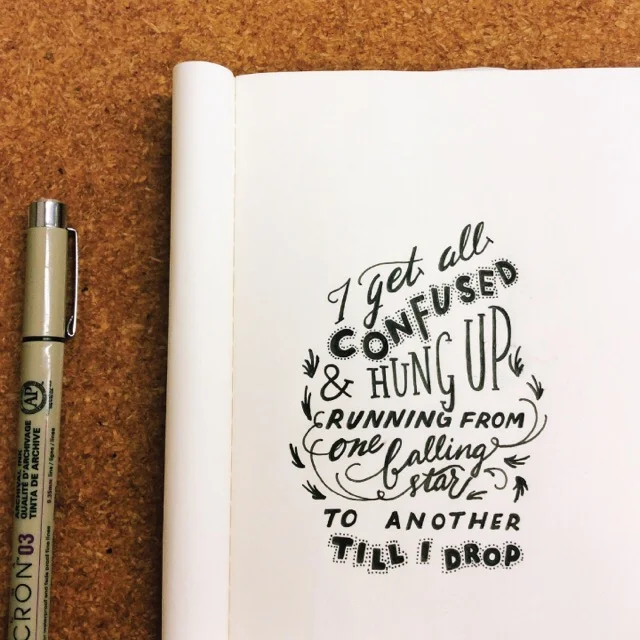 I get all
CONFUSED
& HUNG UP
RUNNING FROM
one falling
star
TO ANOTHER
TILL I DROP
AP
QUALITÉ D'ARCHIVAGE
TINTA DE ARCHIVE
CRON 03